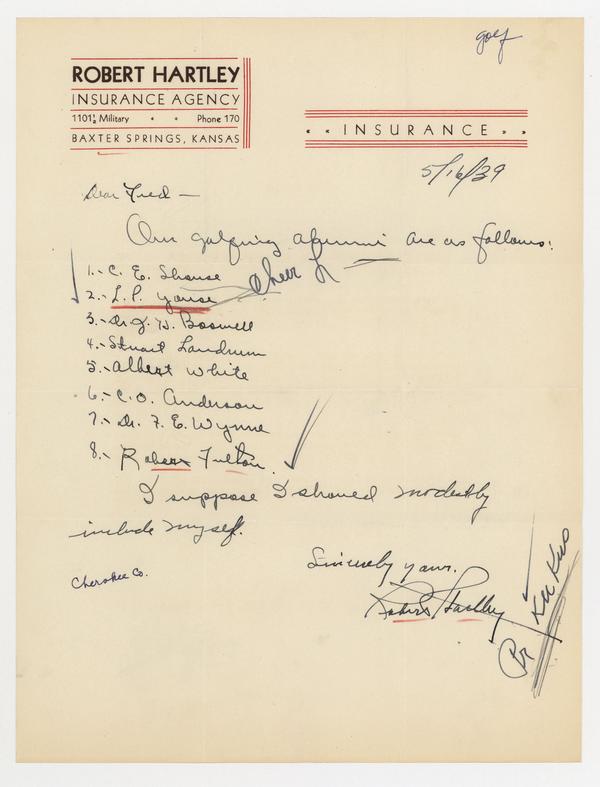 golf
ROBERT HARTLEY
INSURANCE AGENCY
1101½ Military • • Phone 170
BAXTER SPRINGS, KANSAS
« « INSURANCE » »
5/16/39
Dear Fred —
Our golfing alumni are as follows:
1.- C. E. Shouse
2.- L. P. Youse
Cheer
3.- Dr. J. H. Boswell
4.- Stuart Landrum
5.- Albert White
6.- C. O. Anderson
7.- Dr. F. E. Wynne
8.- Robert Fulton.
I suppose I should modestly
include myself.
Sincerely yours.
Robert Hartley
Cherokee Co.